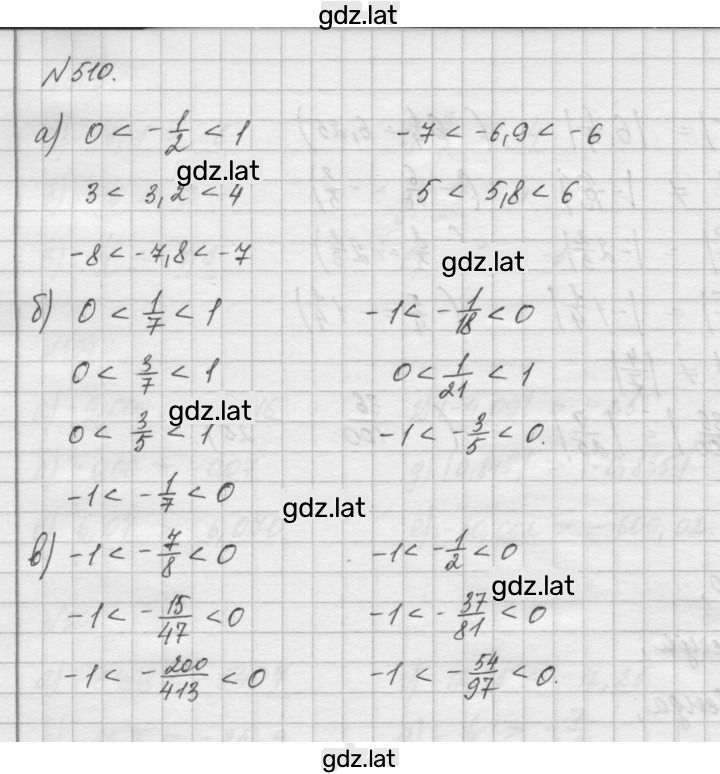 gdz.lat
№510.
а) 0 < -1/2 < 1    -7 < -6,9 < -6
gdz.lat
3 < 3,2 < 4    5 < 5,8 < 6
-8 < -7,8 < -7
gdz.lat
б) 0 < 1/7 < 1    -1 < -1/18 < 0
0 < 3/7 < 1    0 < 1/21 < 1
gdz.lat
0 < 3/5 < 1    -1 < -3/5 < 0.
-1 < -1/7 < 0
gdz.lat
в) -1 < -7/8 < 0    -1 < -1/2 < 0
gdz.lat
-1 < -15/47 < 0    -1 < -37/81 < 0
-1 < -200/413 < 0    -1 < -54/97 < 0.
gdz.lat